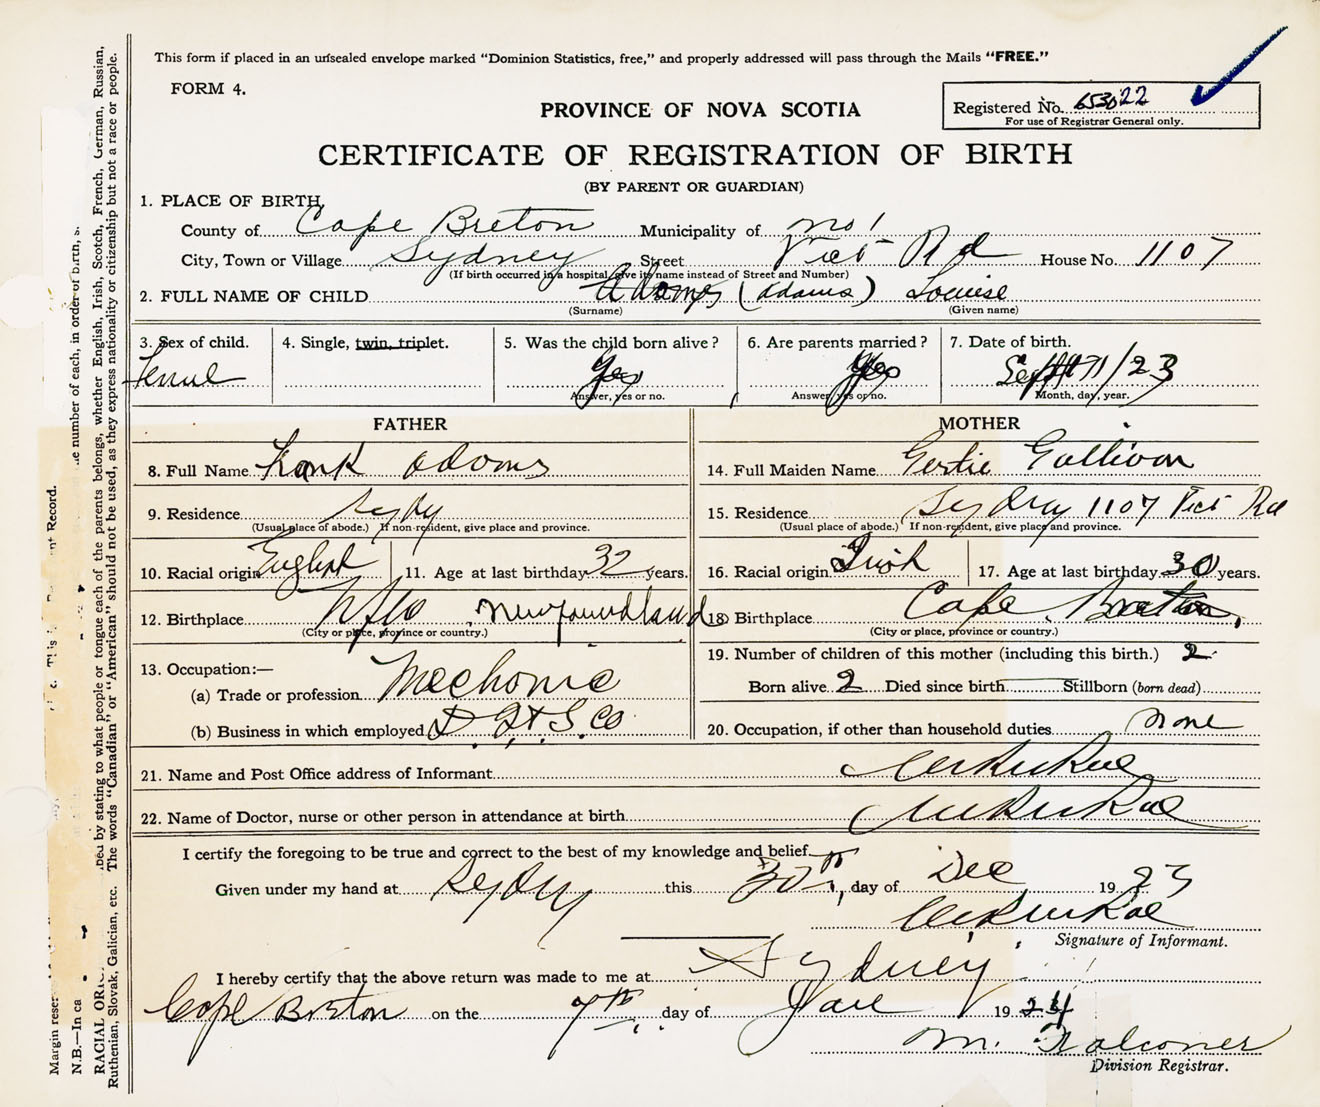 This form if placed in an unsealed envelope marked "Dominion Statistics, free," and properly addressed will pass through the Mails "FREE."
FORM 4.
Registered No. 653022
For use of Registrar General only.
PROVINCE OF NOVA SCOTIA
CERTIFICATE OF REGISTRATION OF BIRTH
(BY PARENT OR GUARDIAN)
1. PLACE OF BIRTH
County of Cape Breton Municipality of no 1
City, Town or Village Sydney Street Vict Rd House No. 1107
(If birth occurred in a hospital, give its name instead of Street and Number)
2. FULL NAME OF CHILD Adams (Adams) Louise
(Surname) (Given name)
3. Sex of child. 4. Single, twin, triplet. 5. Was the child born alive? 6. Are parents married? 7. Date of birth.
Yes Yes Sept /23
Answer, yes or no. Answer, yes or no. Month, day, year.
FATHER MOTHER
8. Full Name Frank Adams 14. Full Maiden Name Gertie Gallivan
9. Residence Sydney 15. Residence Sydney 1107 Vict Rd
(Usual place of abode.) If non-resident, give place and province. (Usual place of abode.) If non-resident, give place and province.
10. Racial origin English 11. Age at last birthday 32 years. 16. Racial origin Irish 17. Age at last birthday 30 years.
12. Birthplace Nfld Newfoundland 18 Birthplace Cape Breton,
(City or place, province or country.) (City or place, province or country.)
13. Occupation:— 19. Number of children of this mother (including this birth.) 2
(a) Trade or profession Mechanic Born alive 2 Died since birth Stillborn (born dead)
(b) Business in which employed S. Co 20. Occupation, if other than household duties none
21. Name and Post Office address of Informant
22. Name of Doctor, nurse or other person in attendance at birth
I certify the foregoing to be true and correct to the best of my knowledge and belief.
Given under my hand at Sydney this 30th, day of Dec 1923
Signature of Informant.
I hereby certify that the above return was made to me at Sydney
Cape Breton on the 7th day of Jan 1924
M. Falconer
Division Registrar.
Margin reser
N.B.—In ca e number of each, in order of birth, s.
RACIAL ORI by stating to what people or tongue each of the parents belongs, whether English, Irish, Scotch, French, German, Russian,
Ruthenian, Slovak, Galician, etc. The words "Canadian" or "American" should not be used, as they express nationality or citizenship but not a race or people.